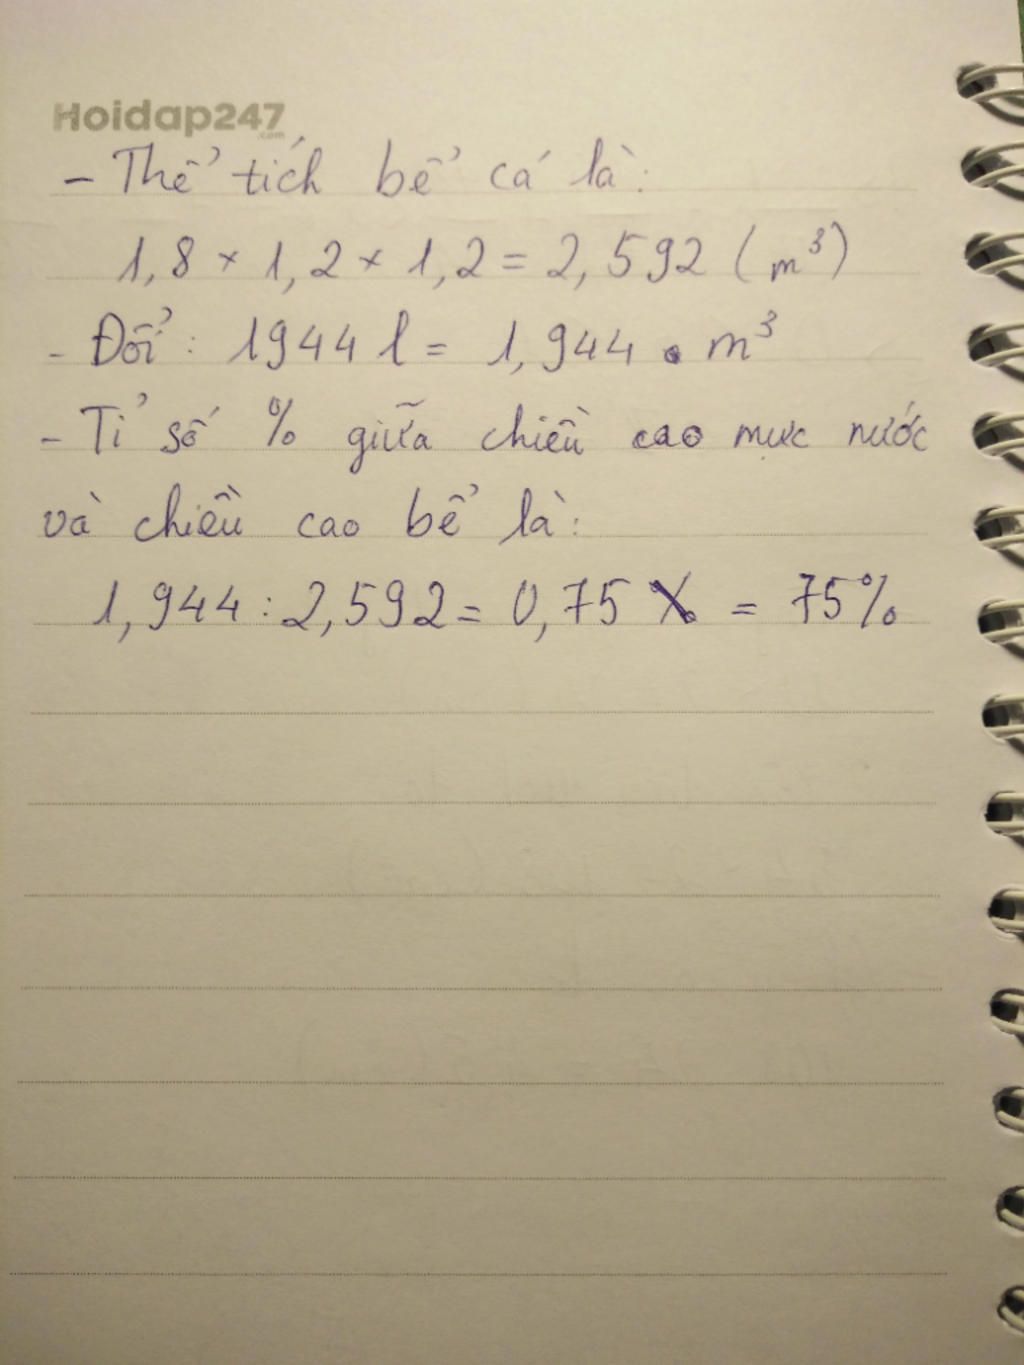 Hoidap247
.com
- Thể tích bể cá là:
1,8 × 1,2 × 1,2 = 2,592 (m³)
- Đổi : 1944 l = 1,944 m³
- Tỉ số % giữa chiều cao mực nước
và chiều cao bể là:
1,944 : 2,592 = 0,75 = 75%